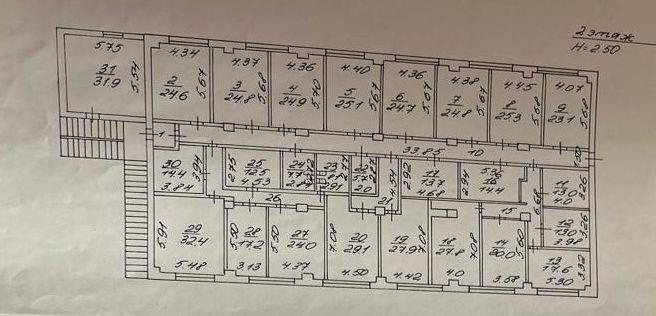 2 этаж
H=2.50
5.75
31
31.9
5.54
4.34
2
24.6
5.67
4.37
3
24.8
5.68
4.36
4
24.9
5.70
4.40
5
25.1
5.67
4.36
6
24.7
5.67
4.38
7
24.8
5.67
4.45
8
25.3
5.68
4.07
9
23.1
5.68
1
33.85
10
1.50
30
14.4
3.94
3.84
2.75
25
12.5
4.53
24
23
2.77
2.0
4.54
21
2.92
17
13.7
4.68
2.94
5.36
16
14.4
11
13.0
4.0
3.26
6.68
12
13.0
3.98
3.26
26
15
5.91
29
32.4
5.48
5.50
28
17.2
3.13
5.50
27
24.0
4.37
7.08
20
29.1
4.50
19
27.9
7.08
4.42
18
27.8
4.0
7.08
14
20.0
5.60
3.58
13
17.6
5.30
3.32